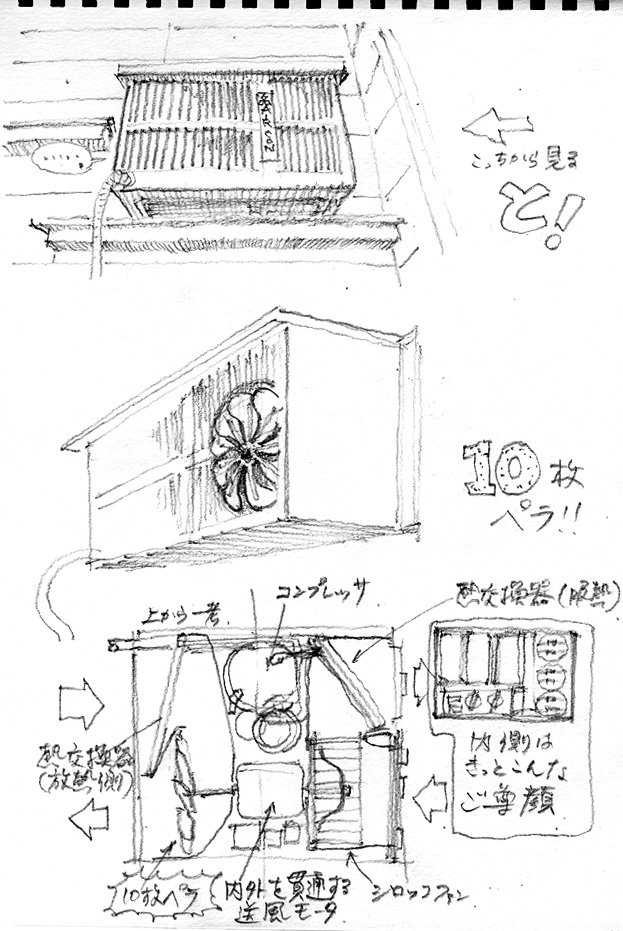 こっちから見る
と!
10枚
ペラ!!
コンプレッサ
上から一考
熱交換器(吸熱)
熱交換器
(放熱側)
内側は
きっとこんな
ご尊顔
10枚ペラ
内外を貫通する
送風モータ
シロッコファン